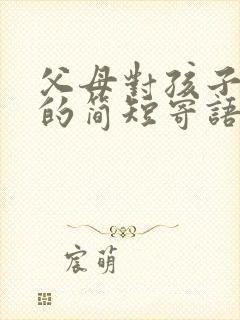 父母對孩子
的简短寄語
宸萌